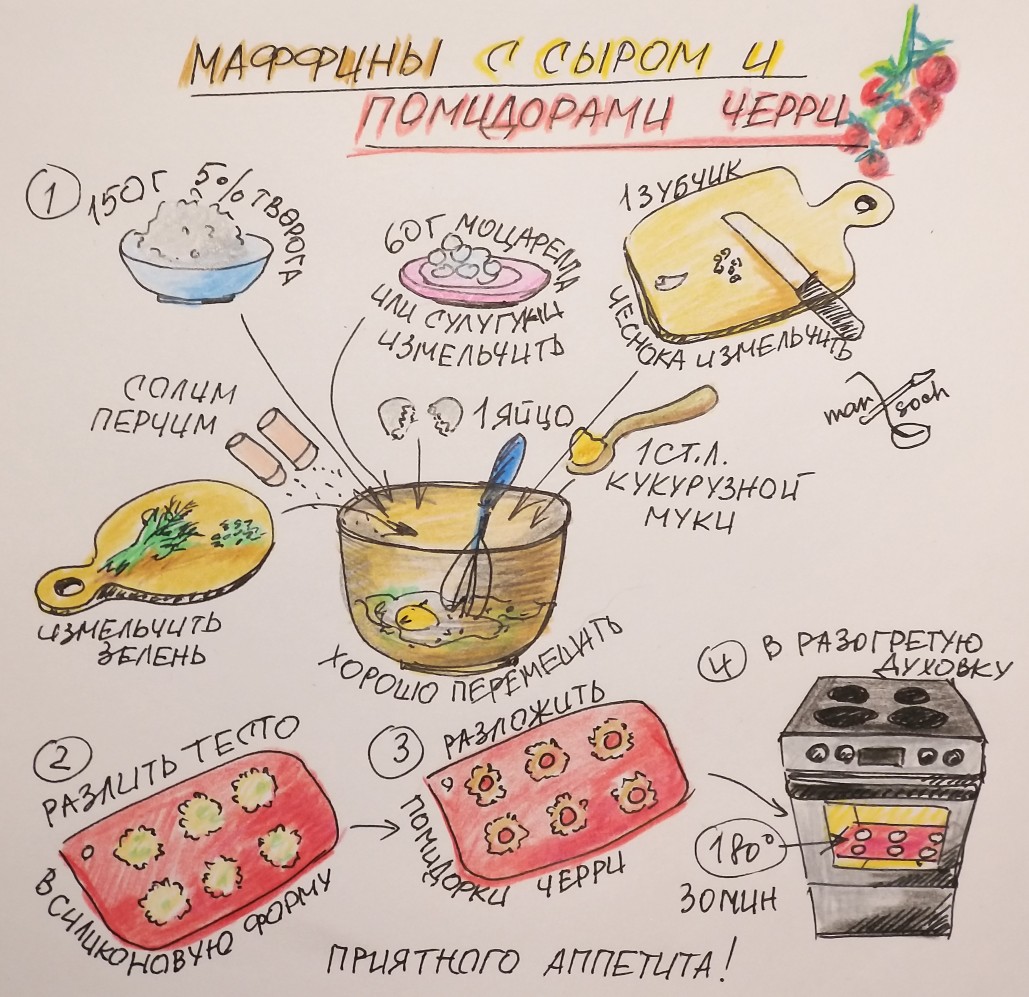 МАФФИНЫ С СЫРОМ И
ПОМИДОРАМИ ЧЕРРИ
1
150Г 5% ТВОРОГА
60Г МОЦАРЕЛЛА
ИЛИ СУЛУГУНИ
ИЗМЕЛЬЧИТЬ
1 ЗУБЧИК
ЧЕСНОКА ИЗМЕЛЬЧИТЬ
СОЛИМ
ПЕРЧИМ
1 ЯЙЦО
1 СТ.Л.
КУКУРУЗНОЙ
МУКИ
mar soch
ИЗМЕЛЬЧИТЬ
ЗЕЛЕНЬ
ХОРОШО ПЕРЕМЕШАТЬ
2
РАЗЛИТЬ ТЕСТО
В СИЛИКОНОВУЮ ФОРМУ
3
РАЗЛОЖИТЬ
ПОМИДОРКИ ЧЕРРИ
4
В РАЗОГРЕТУЮ
ДУХОВКУ
180°
30 МИН
ПРИЯТНОГО АППЕТИТА!